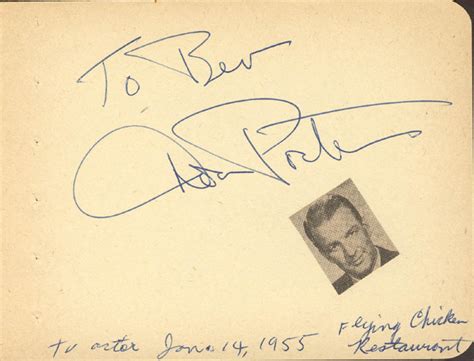 To Bev
Don Porter
TV actor Jan. 14, 1955
Flying Chicken
Restaurant